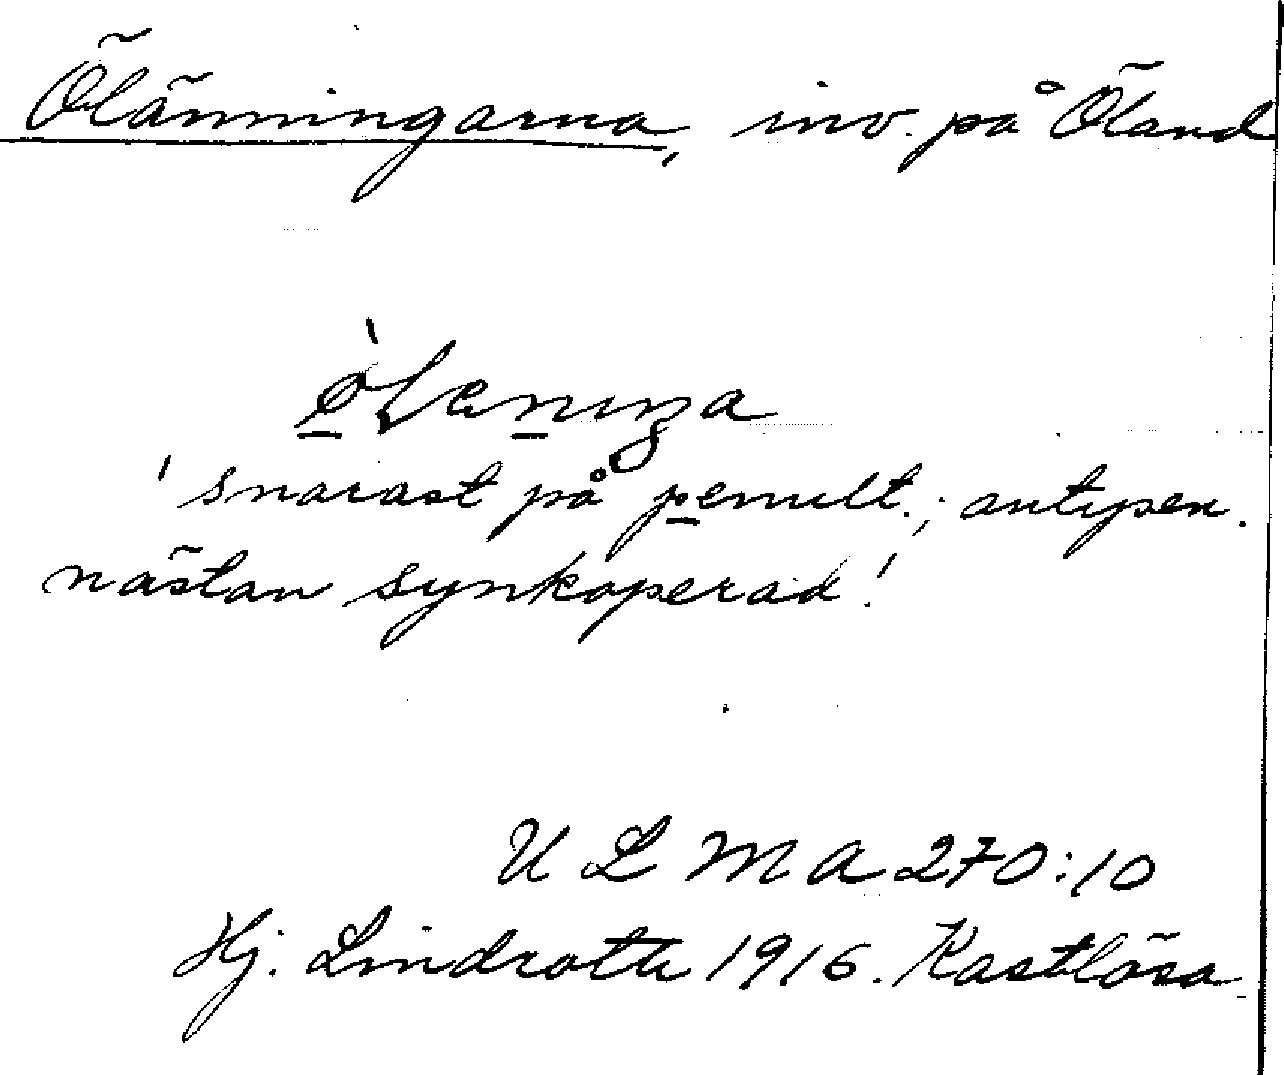 Ölänningarna, inv. på Öland
' snarast på penult.; antepen.
nästan synkoperad!
ULMA 270:10
Hj. Lindroth 1916. Kastlösa